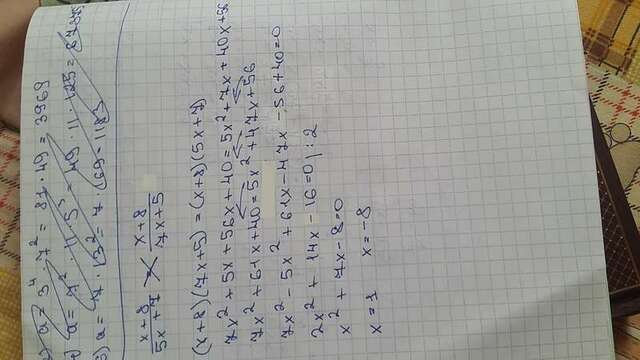 2) a = 3⁴ · 7² = 81 · 49 = 3969
4) a = 7² · 11 · 5³ = 49 · 11 · 125 = 67375
5) a = 7 · 13² = 7 · 169 = 1183
(x+8)/(5x+7) = (x+8)/(7x+5)
(x+8)(7x+5) = (x+8)(5x+7)
7x² + 5x + 56x + 40 = 5x² + 7x + 40x + 56
7x² + 61x + 40 = 5x² + 47x + 56
7x² - 5x² + 61x - 47x - 56 + 40 = 0
2x² + 14x - 16 = 0 | : 2
x² + 7x - 8 = 0
x = 1 x = -8